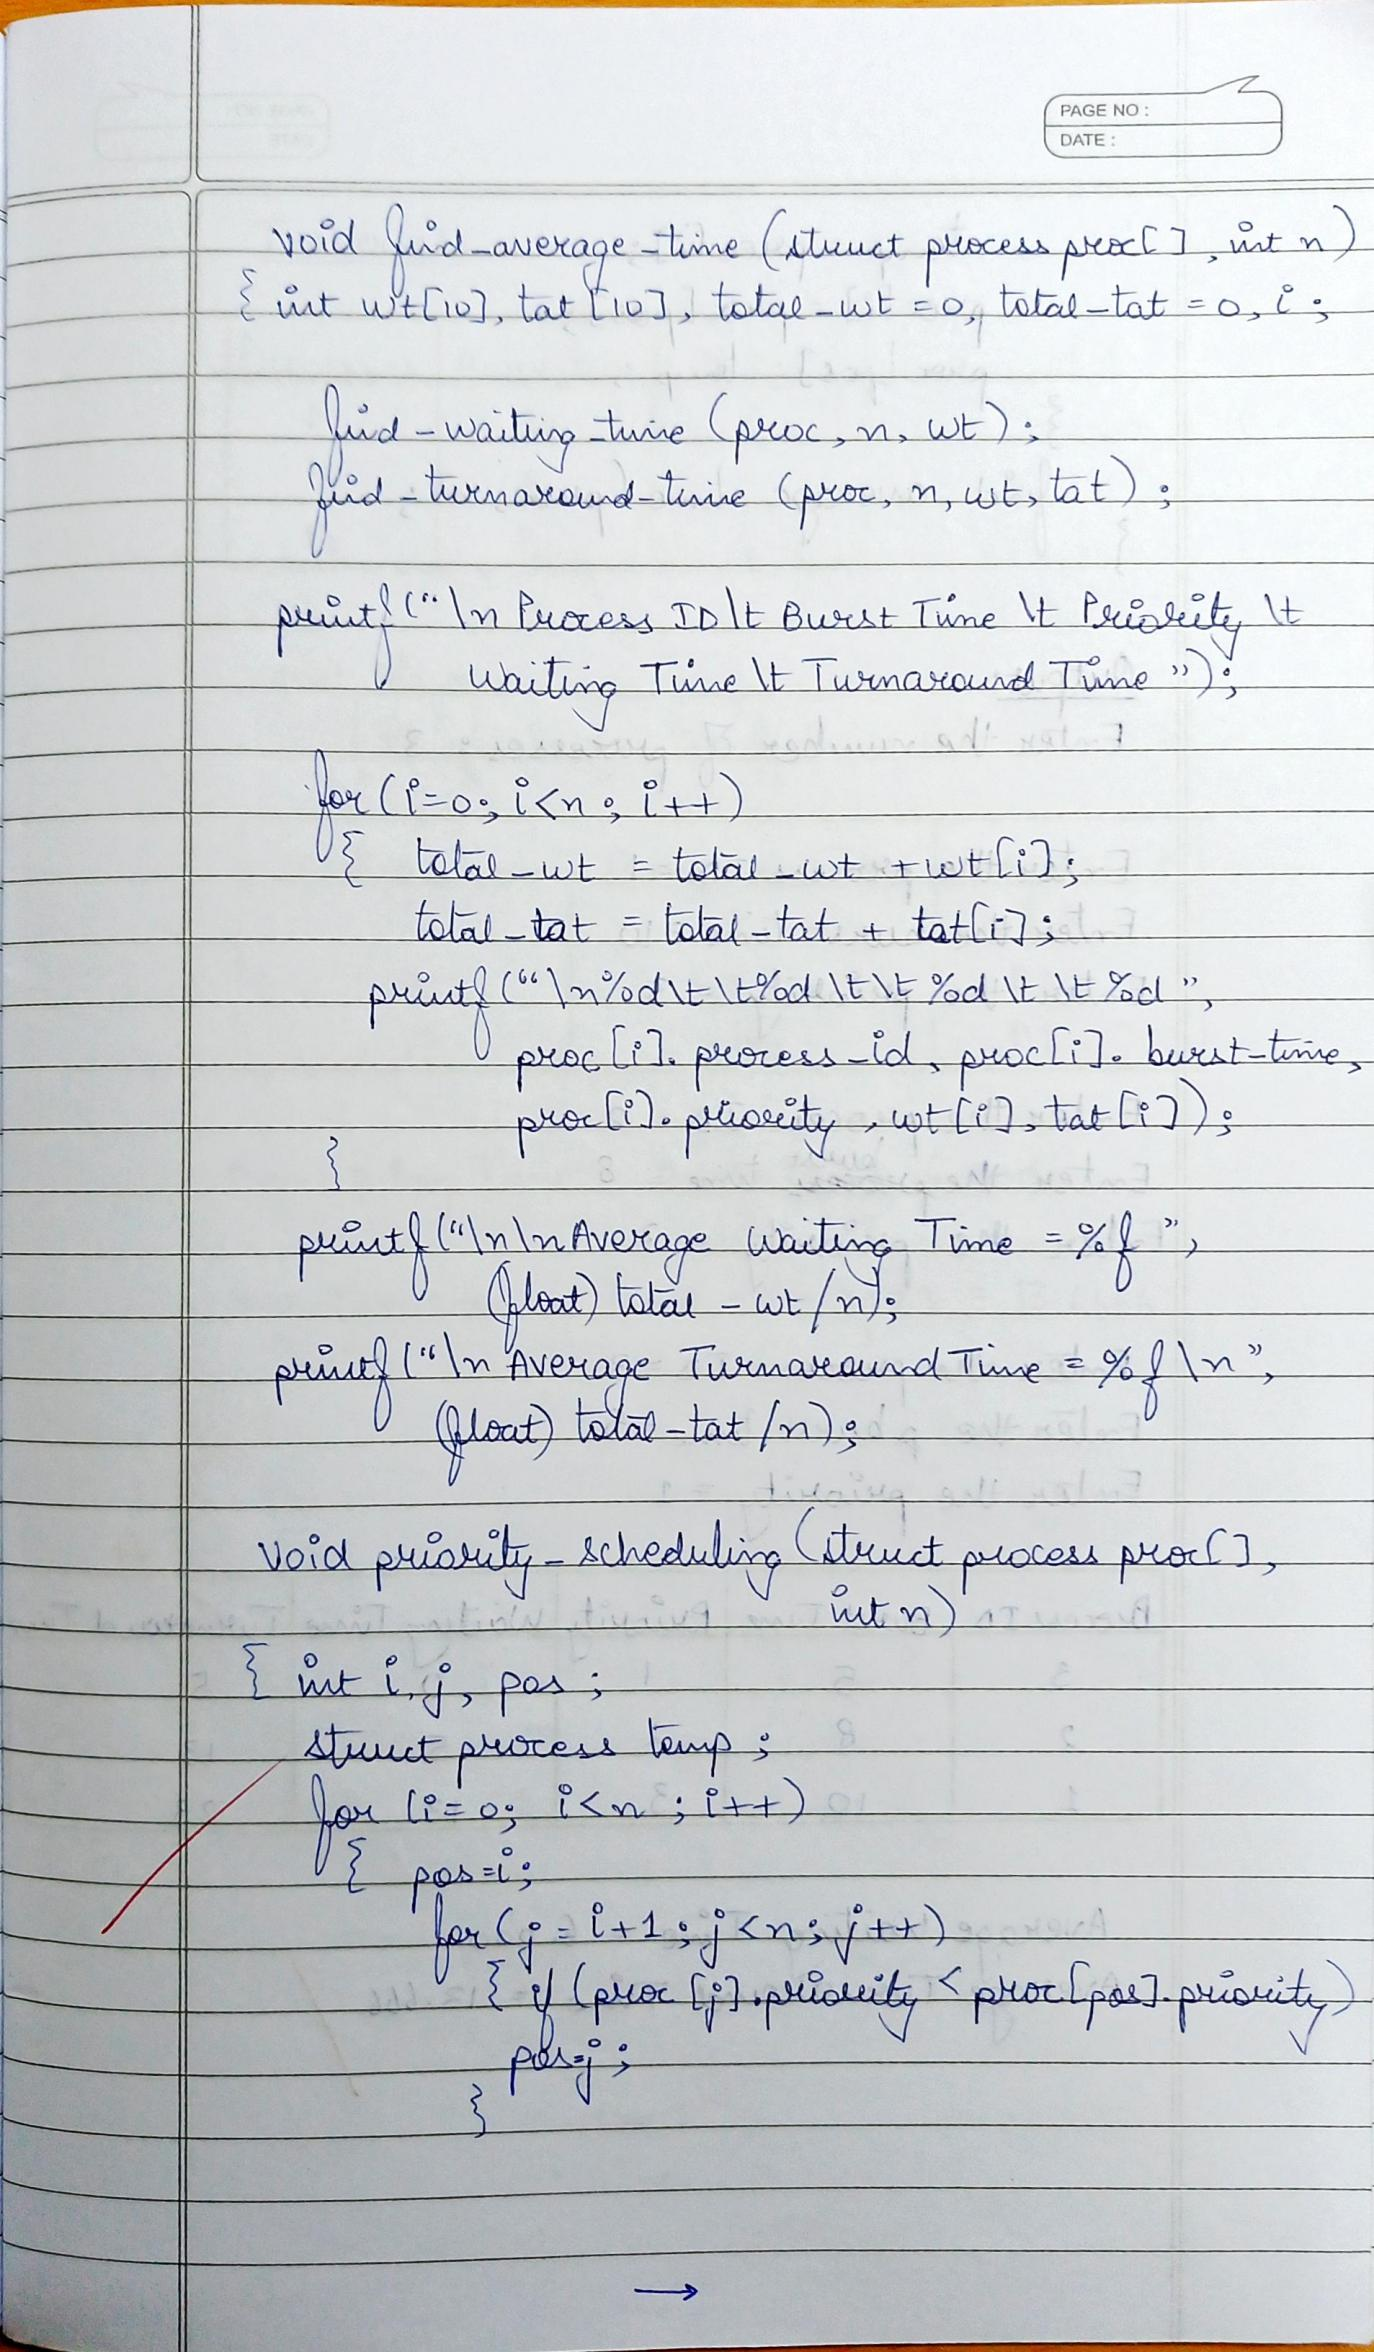 PAGE NO :
DATE :
void find_average_time (struct process proc[], int n)
{ int wt[10], tat [10], total_wt = 0, total_tat = 0, i ;
find_waiting_time (proc, n, wt) ;
find_turnaround_time (proc, n, wt, tat) ;
printf("\n Process ID\t Burst Time \t Priority \t
Waiting Time \t Turnaround Time ");
for(i=0; i<n ; i++)
{ total_wt = total_wt + wt[i];
total_tat = total_tat + tat[i];
printf("\n%d\t\t%d \t\t %d \t \t %d ",
proc[i]. process_id, proc[i]. burst_time,
proc[i]. priority, wt[i], tat[i]);
}
printf("\n\nAverage Waiting Time = %f ",
(float) total_wt /n);
printf("\n Average Turnaround Time = %f \n",
(float) total_tat /n);
void priority_scheduling (struct process proc[],
int n)
{ int i, j, pos ;
struct process temp ;
for (i=0; i<n ; i++)
{ pos=i;
for(j = i+1 ; j <n ; j++)
{ if (proc [j].priority < proc[pos].priority)
pos=j ;
}
→